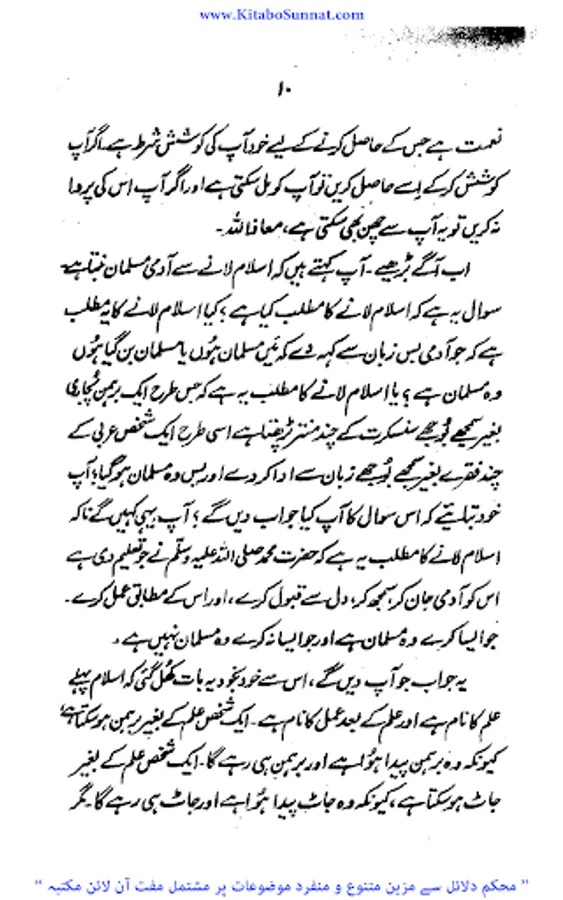 www.KitaboSunnat.com
۱۰
نعمت ہے جس کے حاصل کرنے کے لیے خود آپ کی کوشش شرط ہے۔ اگر آپ
کوشش کرکے اسے حاصل کریں تو آپ کو مل سکتی ہے اور اگر آپ اس کی پروا
نہ کریں تو یہ آپ سے چھن بھی سکتی ہے، معاذاللہ۔
اب آگے بڑھیے۔ آپ کہتے ہیں کہ اسلام لانے سے آدمی مسلمان بنتا ہے۔
سوال یہ ہے کہ اسلام لانے کا مطلب کیا ہے؟ کیا اسلام لانے کا یہ مطلب
ہے کہ جو آدمی بس زبان سے کہہ دے کہ میں مسلمان ہوں یا مسلمان بن گیا ہوں
وہ مسلمان ہے؟ یا اسلام لانے کا مطلب یہ ہے کہ جس طرح ایک برہمن پُجاری
بغیر سمجھے بُوجھے سنسکرت کے چند منتر پڑھتا ہے اسی طرح ایک شخص عربی کے
چند فقرے بغیر سمجھے بُوجھے زبان سے ادا کردے اور بس وہ مسلمان ہوگیا؟ آپ
خود بتایئے کہ اس سوال کا آپ کیا جواب دیں گے؟ آپ یہی کہیں گے ناکہ
اسلام لانے کا مطلب یہ ہے کہ حضرت محمد صلی اللہ علیہ وسلم نے جو تعلیم دی ہے
اس کو آدمی جان کر، سمجھ کر، دل سے قبول کرے، اور اس کے مطابق عمل کرے۔
جو ایسا کرے وہ مسلمان ہے اور جو ایسا نہ کرے وہ مسلمان نہیں ہے۔
یہ جواب جو آپ دیں گے، اس سے خود بخود یہ بات کھل گئی کہ اسلام پہلے
علم کا نام ہے اور علم کے بعد عمل کا نام ہے۔ ایک شخص علم کے بغیر برہمن ہوسکتا ہے،
کیونکہ وہ برہمن پیدا ہُوا ہے اور برہمن ہی رہے گا۔ ایک شخص علم کے بغیر
جاٹ ہوسکتا ہے، کیونکہ وہ جاٹ پیدا ہُوا ہے اور جاٹ ہی رہے گا۔ مگر
" محکم دلائل سے مزین متنوع و منفرد موضوعات پر مشتمل مفت آن لائن مکتبہ "